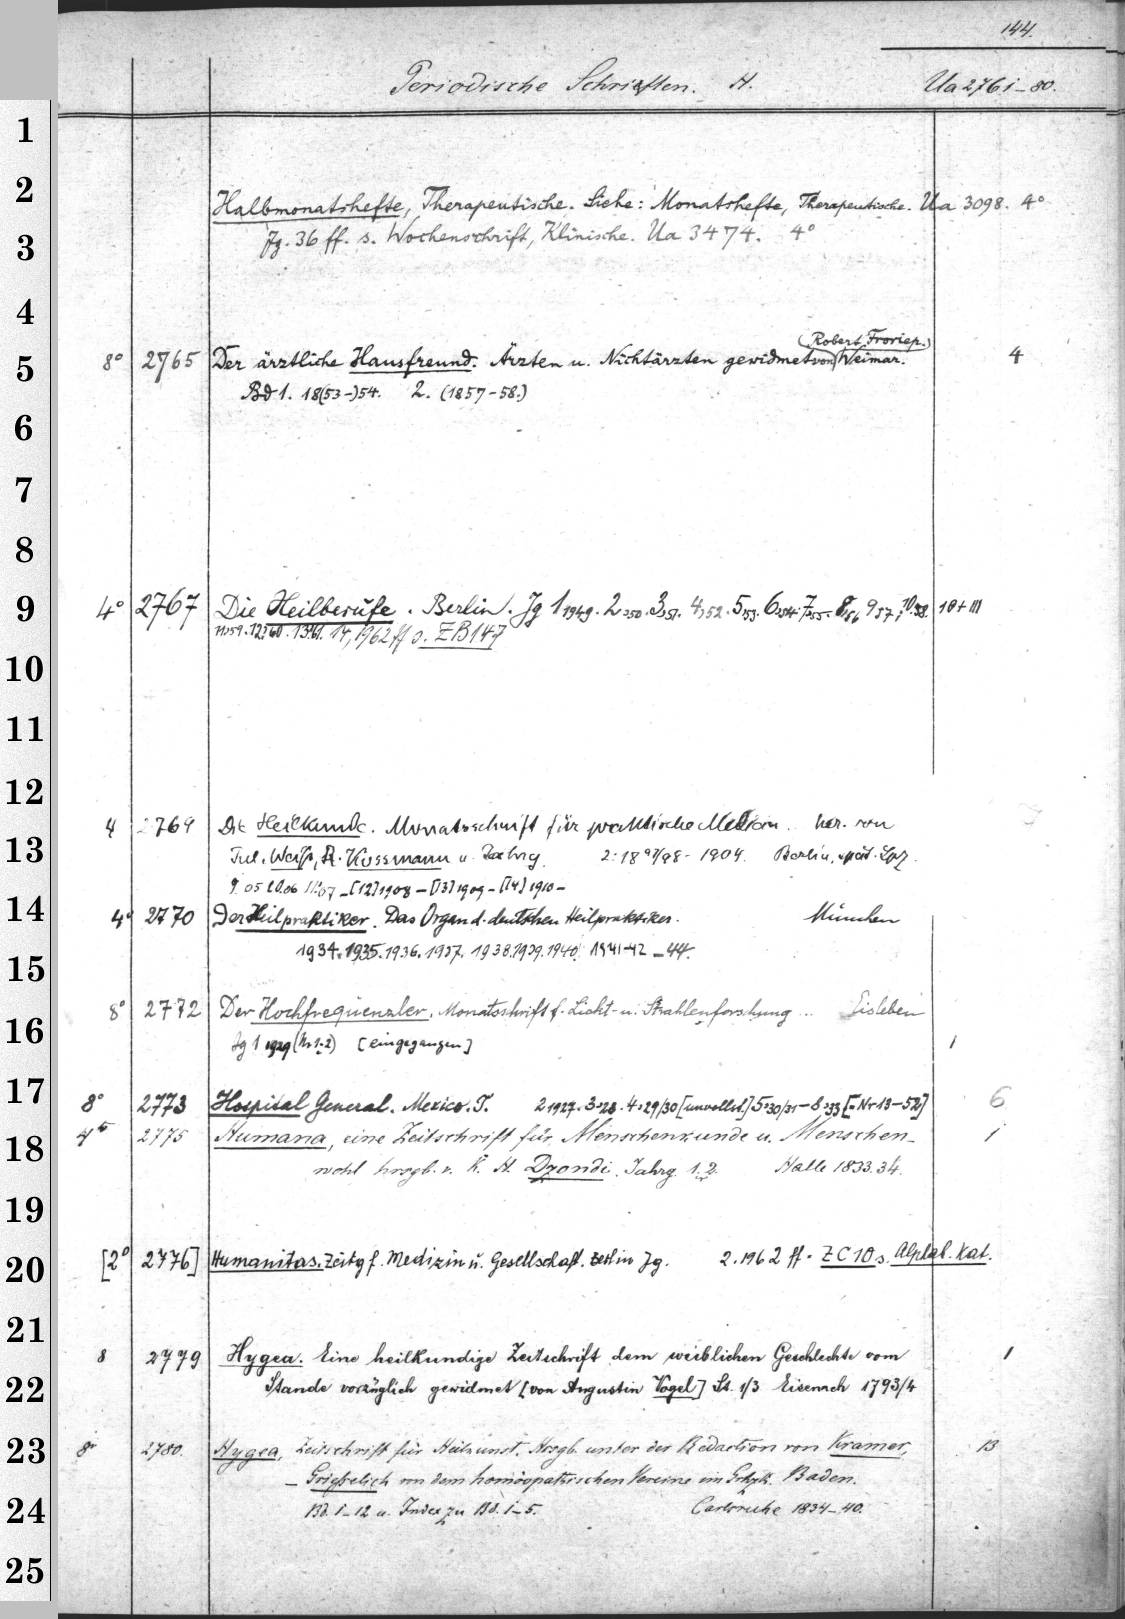 144.
Periodische Schriften. H. Ua 2761-80.
1
2 Halbmonatshefte, Therapeutische. Siehe: Monatshefte, Therapeutische. Ua 3098. 4°
3 Jg. 36 ff. s. Wochenschrift, Klinische. Ua 3474. 4°
4
(Robert Froriep.)
5 8° 2765 Der ärztliche Hausfreund. Ärzten u. Nichtärzten gewidmet von Weimar. 4
Bd 1. 18(53-)54. 2. (1857-58.)
6
7
8
9 4° 2767 Die Heilberufe. Berlin. Jg 1 1949. 2,50. 3,51. 4,52. 5,53. 6,54. 7,55. 8,56 9 57, 10.58. 10+III
11 1959. 12,60. 13,61. 14,1962 ff s. ZB 147
10
11
12
4 2769 Die Heilkunde. Monatsschrift für praktische Medizin. her. von
13 Jul. Weiss, R. Kossmann u. 2: 1897/98-1904. Berlin,
9. 05 10.06 11.07 -[12]1908-[13]1909-[14]1910-
14 4° 2770 Der Heilpraktiker. Das Organ d. deutschen Heilpraktiker. München
15 1934. 1935. 1936. 1937. 1938. 1939. 1940. 1941-42 -44.
8° 2772 Der Hochfrequenzler. Monatsschrift f. Licht- u. Strahlenforschung ... Eisleben
16 Jg 1 1929 (Nr 1-2) [eingegangen] 1
17 8° 2773 Hospital General. Mexico. T. 2 1927. 3,28. 4,29/30 [unvollst.] 5,30/31-8,33 [=Nr 13-52] 6
18 2775 Humana, eine Zeitschrift für Menschenkunde u. Menschen- 1
wohl hrsgb. v. K. H. Dzondi. Jahrg. 1. 2. Halle 1833. 34.
19
20 [2° 2776] Humanitas. Zeitg f. Medizin u. Gesellschaft. Berlin Jg. 2. 1962 ff. ZC 10 s. Alphab. Kat.
21
8 2779 Hygea. Eine heilkundige Zeitschrift dem weiblichen Geschlechte vom 1
22 Stande vorzüglich gewidmet [von Augustin Vogel] St. 1/3 Eisenach 1793/4
23 8° 2780. Hygea, Zeitschrift für Heilkunst. Hrsgb. unter der Redaction von Kramer, 13
- Griesselich von dem homöopathischen Vereine im Baden.
24 Bd. 1-12 u. Index zu Bd. 1-5. Carlsruhe 1834-40.
25